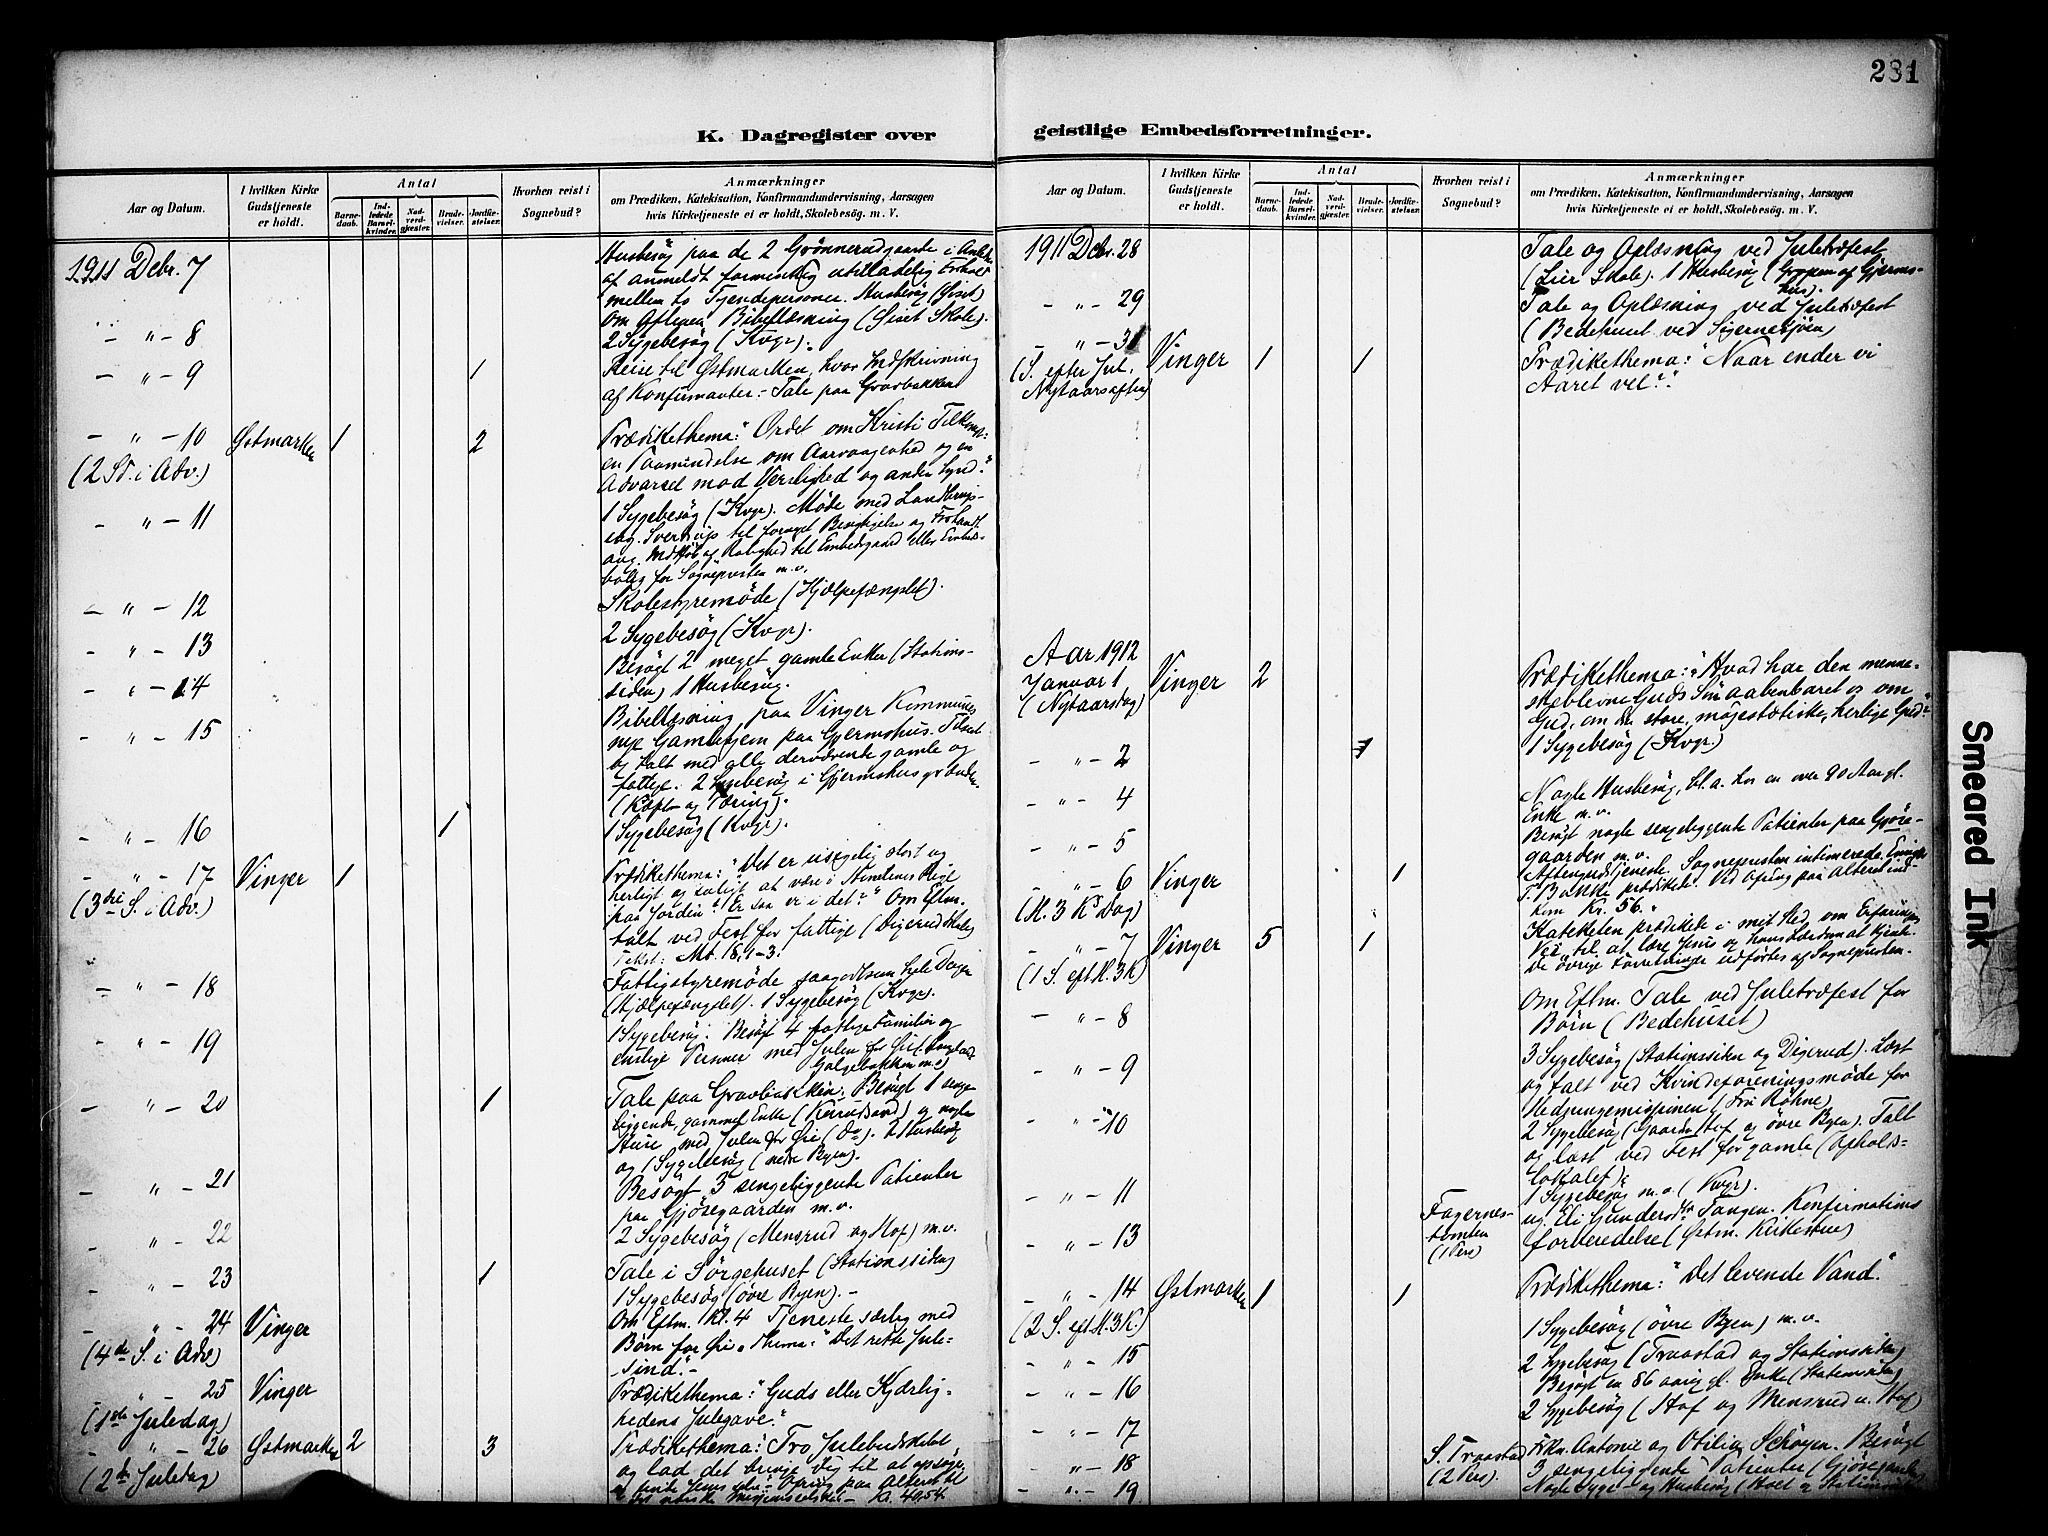 281
K. Dagregister over
geistlige Embedsforretninger.
Aar og Datum.
I hvilken Kirke
Gudstjeneste
er holdt.
Antal
Barne-
daab.
Ind-
ledede
Barsel-
kvinder.
Nad-
verd-
gjæster.
Brude-
vielser.
Jordfæ-
stelser.
Hvorhen reist i
Sognebud?
Anmærkninger
om Prædiken, Katekisation, Konfirmandundervisning, Aarsagen
hvis Kirketjeneste ei er holdt, Skolebesøg. m. V.
1911 Debr. 7
Husbesøg paa de 2 Grønnerudgaarde i
af anmeldt formentlig utilladelig Forhold
mellem to Tjendepersoner. Husbesøg
Om Aftenen Bibellæsning ( Skole).
- " - 8
2 Sygebesøg (Kvgr).
- " - 9 1
Reise til Østmarken, hvor Indskrivning
af Konfirmanter. - Tale paa Gravbakken
- " - 10 Østmarken 1 2
(2 S. i Adv.)
Prædikethema: "Ordet om Kristi Tilkomst:
en Paamindelse om Aarvaagenhed og en
Advarsel mod Verslighed og anden Synd."
- " - 11
1 Sygebesøg (Kvgr). Møde med Landbrugs-
til Embedsgaard eller
bolig for Sognepresten m.v.
- " - 12
Skolestyremøde (Hjælpefængslet).
2 Sygebesøg (Kvgr).
- " - 13
Besøgt 2 meget gamle Enker (Stations-
siden) 1 Husbesøg.
- " - 14
- " - 15
Bibellæsning paa Vinger Kommunes
nye Gamlehjem paa Gjermshus. Tilset
og talt med alle derværende gamle og
fattige. 2 Sygebesøg i Gjermshusgrænden
- " - 16 1
1 Sygebesøg (Kvgr).
- " - 17 Vinger 1
(3die S. i Adv.)
Prædikethema: "Det er usigelig stort og
herligt og saligt at være i Himlenes Rige
paa Jorden. Er saa er i det?" Om Eftm.
talt ved Fest for fattige (Digerud Skole)
Tekst: Mt. 18, 1-3.
- " - 18
Fattigstyremøde saagodtsom hele Dagen
(Hjælpefængslet). 1 Sygebesøg (Kvgr).
- " - 19
1 Sygebesøg. Besøgt 4 fattige Familier og
enslige Personer med Julen for Øie
Galgebakken m.v.)
- " - 20 1
Tale paa Gravbakken. Besøgt 1 senge-
liggende, gammel Enke og nogle
med Julen for Øie (do). 2 Husbesøg
og 1 Sygebesøg (nedre Byen).
- " - 21
Besøgt 3 sengeliggende Patienter
paa Gjøsegaarden m.v.
- " - 22
2 Sygebesøg (Mensrud og Hof) m.v.
- " - 23 1
Tale i Sørgehuset (Stationssiden)
1 Sygebesøg (øvre Byen). -
- " - 24 Vinger
(4de S. i Adv)
Om Eftm. Kl. 4 Tjeneste særlig med
Børn for Øie. Thema: "Det rette Jule-
sind." -
- " - 25 Vinger
(1ste Juledag)
Prædikethema: "Guds eller Kjærlig-
hedens Julegave."
- " - 26 Østmarken 2 3
(2den Juledag
Prædikethema: "Tro Julebudskabet
og lad det bringe dig til at opsøge
og finde Jesus Ofring paa Alteret til
Kr. 40,54.
Aar og Datum.
I hvilken Kirke
Gudstjeneste
er holdt.
Antal
Barne-
daab.
Ind-
ledede
Barsel-
kvinder.
Nad-
verd-
gjæster.
Brude-
vielser.
Jordfæ-
stelser.
Hvorhen reist i
Sognebud?
Anmærkninger
om Prædiken, Katekisation, Konfirmandundervisning, Aarsagen
hvis Kirketjeneste ei er holdt, Skolebesøg. m. V.
1911 Debr. 28
Tale og Oplæsning ved Juletræfest
(Lier Skole). 1 Husbesøg (Toppen af Gjerms-
hus).
- " - 29
Tale og Oplæsning ved Juletræfest
(Bedehuset ved Sigernesjøen)
- " - 31 Vinger 1 1
(S. efter Jul,
Nytaarsaften)
Prædikethema: "Naar ender vi
Aaret vel?"
Aar 1912
Januar 1 Vinger 2
(Nytaarsdag)
Prædikethema: "Hvad har den menne-
skeblevne Guds Søn aabenbaret os om
Gud, om den store, majestætiske, herlige Gud?"
1 Sygebesøg (Kvgr.)
- " - 2 1
- " - 4
Nogle Husbesøg, bl.a. hos en over 90 Aar gl.
Enke m.v.
- " - 5
Besøgt nogle sengeliggende Patienter paa Gjøse-
gaarden m.v.
- " - 6 Vinger 1
(H. 3 K's Dag)
Aftengudstjeneste. Sognepresten intimerede,
prædikede. Ved Ofring paa Alteret ind-
kom Kr. 56."
- " - 7 Vinger 5 1
(1 S. eft H. 3 K)
Kateketen prædikede i mit Sted om Erfaringens
Vei til at lære Jesus og hans Lærdom at kjende
De øvrige Forretninger udførtes af Sognepresten.
Om Eftm. Tale ved Juletræfest for
Børn (Bedehuset)
- " - 8
- " - 9
3 Sygebesøg (Stationssiden og Digerud). Læst
og talt ved Kvindeforeningsmøde for
Hedningemissionen (Fru Røhne).
- " - 10
2 Sygebesøg (Gaarden Hof og øvre Byen). Talt
og læst ved Fest for gamle (Opholds-
lokalet).
- " - 11
1 Sygebesøg m.v. (Kvgr).
- " - 13
Fagernes-
tomten
(1 Pers)
ug. Eli Gundersdtr. Tangen. Konfirmations
forberedelse (Østm. Kirkestue)
- " - 14 Østmarken 1 1
(2 S. eft H. 3 K.)
Prædikethema: "Det levende Vand."
- " - 15
1 Sygebesøg (øvre Byen) m.v.
2 Sygebesøg (Traastad og Stationssiden)
- " - 16
Besøgt en 86 aarig gl. Enke (Stationssiden)
2 Sygebesøg (Hof og Mensrud u. Hof)
- " - 17
- " - 18
S. Traastad
(2 Pers).
Frkn. Antonie og Otilia Schøyen. Besøgt
3 sengeliggende Patienter (Gjøsegaarden)
- " - 19
Nogle Syge- og Husbesøg (Hoel og Stationssiden)
Smeared Ink